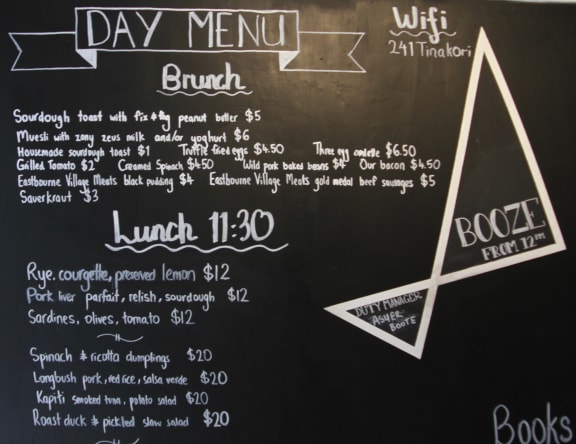 DAY MENU
Wifi
241 Tinakori
Brunch
Sourdough toast with fix & fog peanut butter $5
Muesli with zany zeus milk and/or yoghurt $6
Housemade sourdough toast $1 Truffle fried eggs $4.50 Three egg omlette $6.50
Grilled Tomato $2 Creamed Spinach $4.50 Wild pork baked beans $4 Our bacon $4.50
Eastbourne Village Meats black pudding $4 Eastbourne Village Meats gold medal beef sausages $5
Sauerkraut $3
Lunch 11:30
Rye, courgette, preserved lemon $12
Pork liver parfait, relish, sourdough $12
Sardines, olives, tomato $12
Spinach & ricotta dumplings $20
Longbush pork, red rice, salsa verde $20
Kapiti smoked tuna, potato salad $20
Roast duck & pickled slaw salad $20
BOOZE
FROM 12PM
DUTY MANAGER:
ASHER
BOOTE
Books